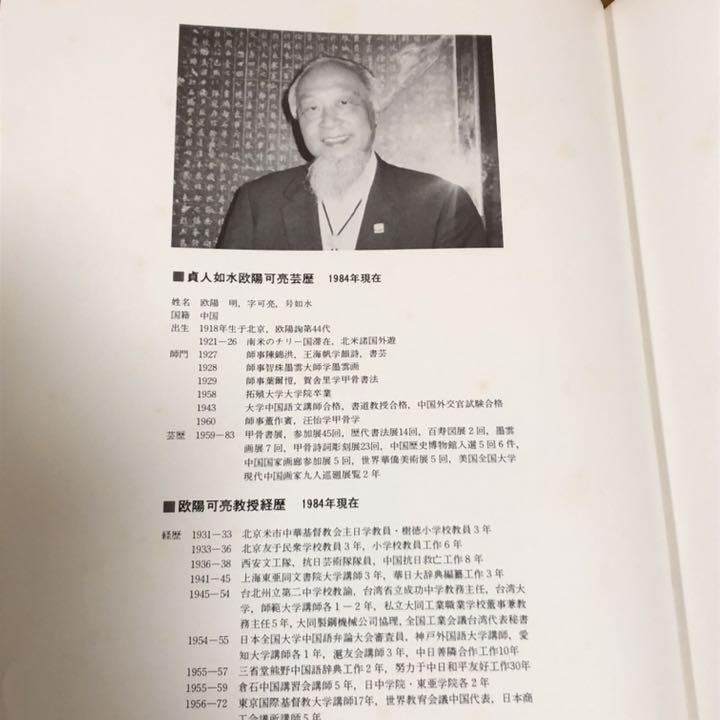 ■貞人如水欧陽可亮芸歴　1984年現在
姓名　欧陽　明，字可亮，号如水
国籍　中国
出生　1918年生于北京，欧陽詢第44代
1921－26　南米のチリー国滞在，北米諸国外遊
師門　1927　師事陳錦洪，王海帆学顔詩，書芸
1928　師事智珠墨雲大師学墨雲画
1929　師事葉爾愷，賀舎里学甲骨書法
1958　拓殖大学大学院卒業
1943　大学中国語文講師合格，書道教授合格，中国外交官試験合格
1960　師事董作賓，汪怡学甲骨学
芸歴　1959－83　甲骨書展，参加展45回，歴代書法展14回，百寿図展２回，墨雲
画展７回，甲骨詩詞彫刻展23回，中国歴史博物館人選５回６件，
中国国家画廊参加展５回，世界華僑美術展５回，美国全国大学
現代中国画家九人巡廻展覧２年
■欧陽可亮教授経歴　1984年現在
経歴　1931－33　北京米市中華基督教会主日学教員・樹徳小学校教員３年
1933－36　北京友于民衆学校教員３年，小学校教員工作６年
1936－38　西安文工隊，抗日芸術隊隊員，中国抗日救亡工作８年
1941－45　上海東亜同文書院大学講師３年，華日大辞典編纂工作３年
1945－54　台北州立第二中学校教諭，台湾省立成功中学教務主任，台湾大
学，師範大学講師各１－２年，私立大同工業職業学校董事兼教
務主任５年，大同製鋼機械公司協理，全国工業会議台湾代表秘書
1954－55　日本全国大学中国語弁論大会審査員，神戸外国語大学講師，愛
知大学講師各１年，滬友会講師３年，中日善隣合作工作10年
1955－57　三省堂熊野中国語辞典工作２年，努力于中日和平友好工作30年
1955－59　倉石中国講習会講師５年，日中学院・東亜学院各２年
1956－72　東京国際基督教大学講師17年，世界教育会議中国代表，日本商
工会議所講師５年